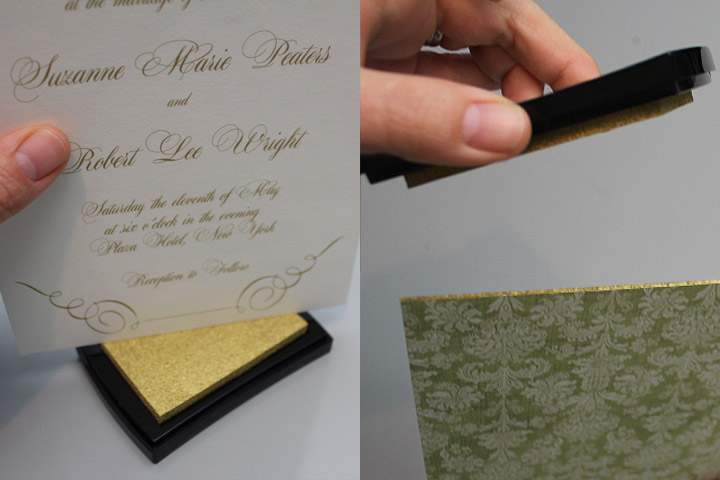 at the marriage of
Suzanne Marie Peaters
and
Robert Lee Wright
Saturday the eleventh of May
at six o'clock in the evening
Plaza Hotel, New York
Reception to Follow